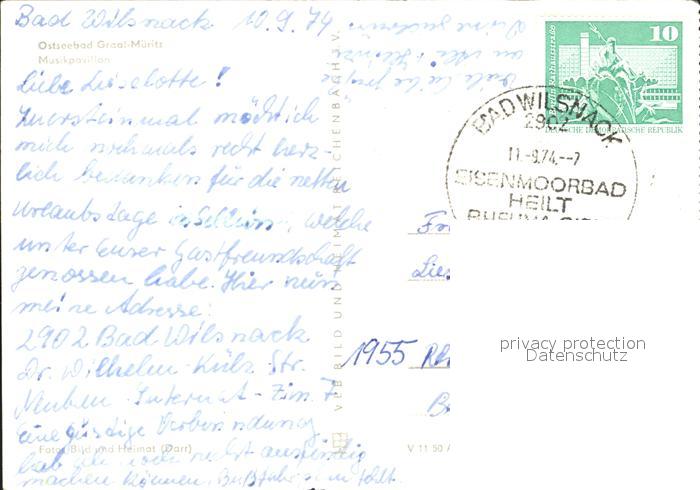 Bad Wilsnack 10.9.74
Ostseebad Graal-Müritz
Musikpavillon
Liebe Lieselotte!
Zuersteinmal möcht ich
mich nochmals recht herz-
lich bedanken für die netten
Urlaubstage in Schlinz, welche
unter Eurer Gastfreundschaft
genossen habe. Hier nun
meine Adresse:
2902 Bad Wilsnack
Dr. Wilhelm-Külz-Str.
Neuben Internat - Zim. 7
Eine günstige Verbindung
Foto: Bild und Heimat (Darr)
hab ich noch nicht ausfindig
machen können.
Viele liebe Grüße
VEB BILD UND HEIMAT REICHENBACH I. V.
V 11 50 /
10
DEUTSCHE DEMOKRATISCHE REPUBLIK
BAD WILSNACK
2902
11.-9.74.--7
EISENMOORBAD
HEILT
RHEUMA
Lies
1955
privacy protection
Datenschutz